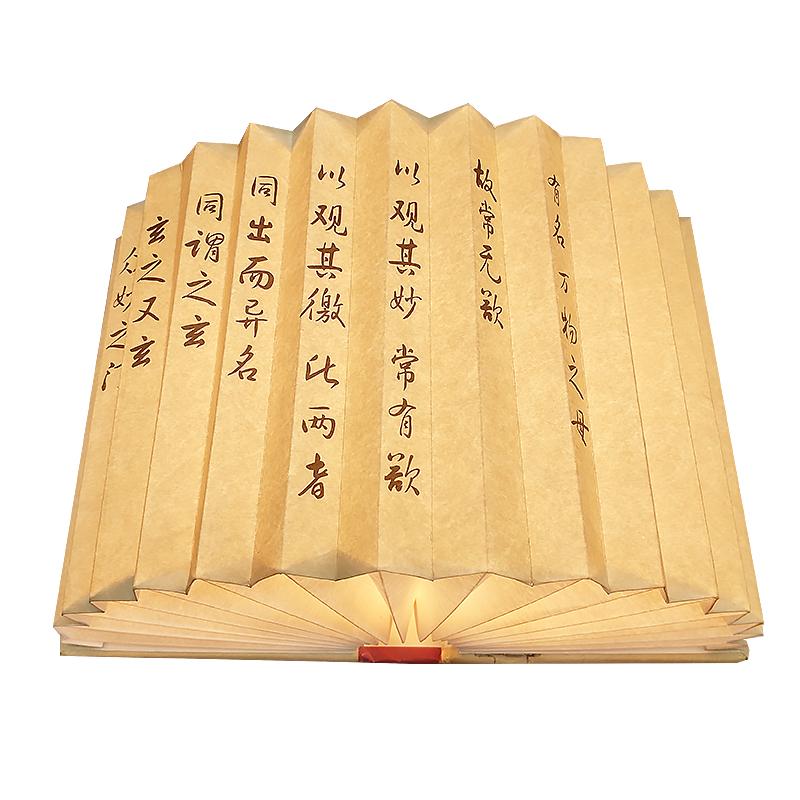 有名万物之母
故常无欲
以观其妙常有欲
以观其徼此两者
同出而异名
同谓之玄
玄之又玄
众妙之门